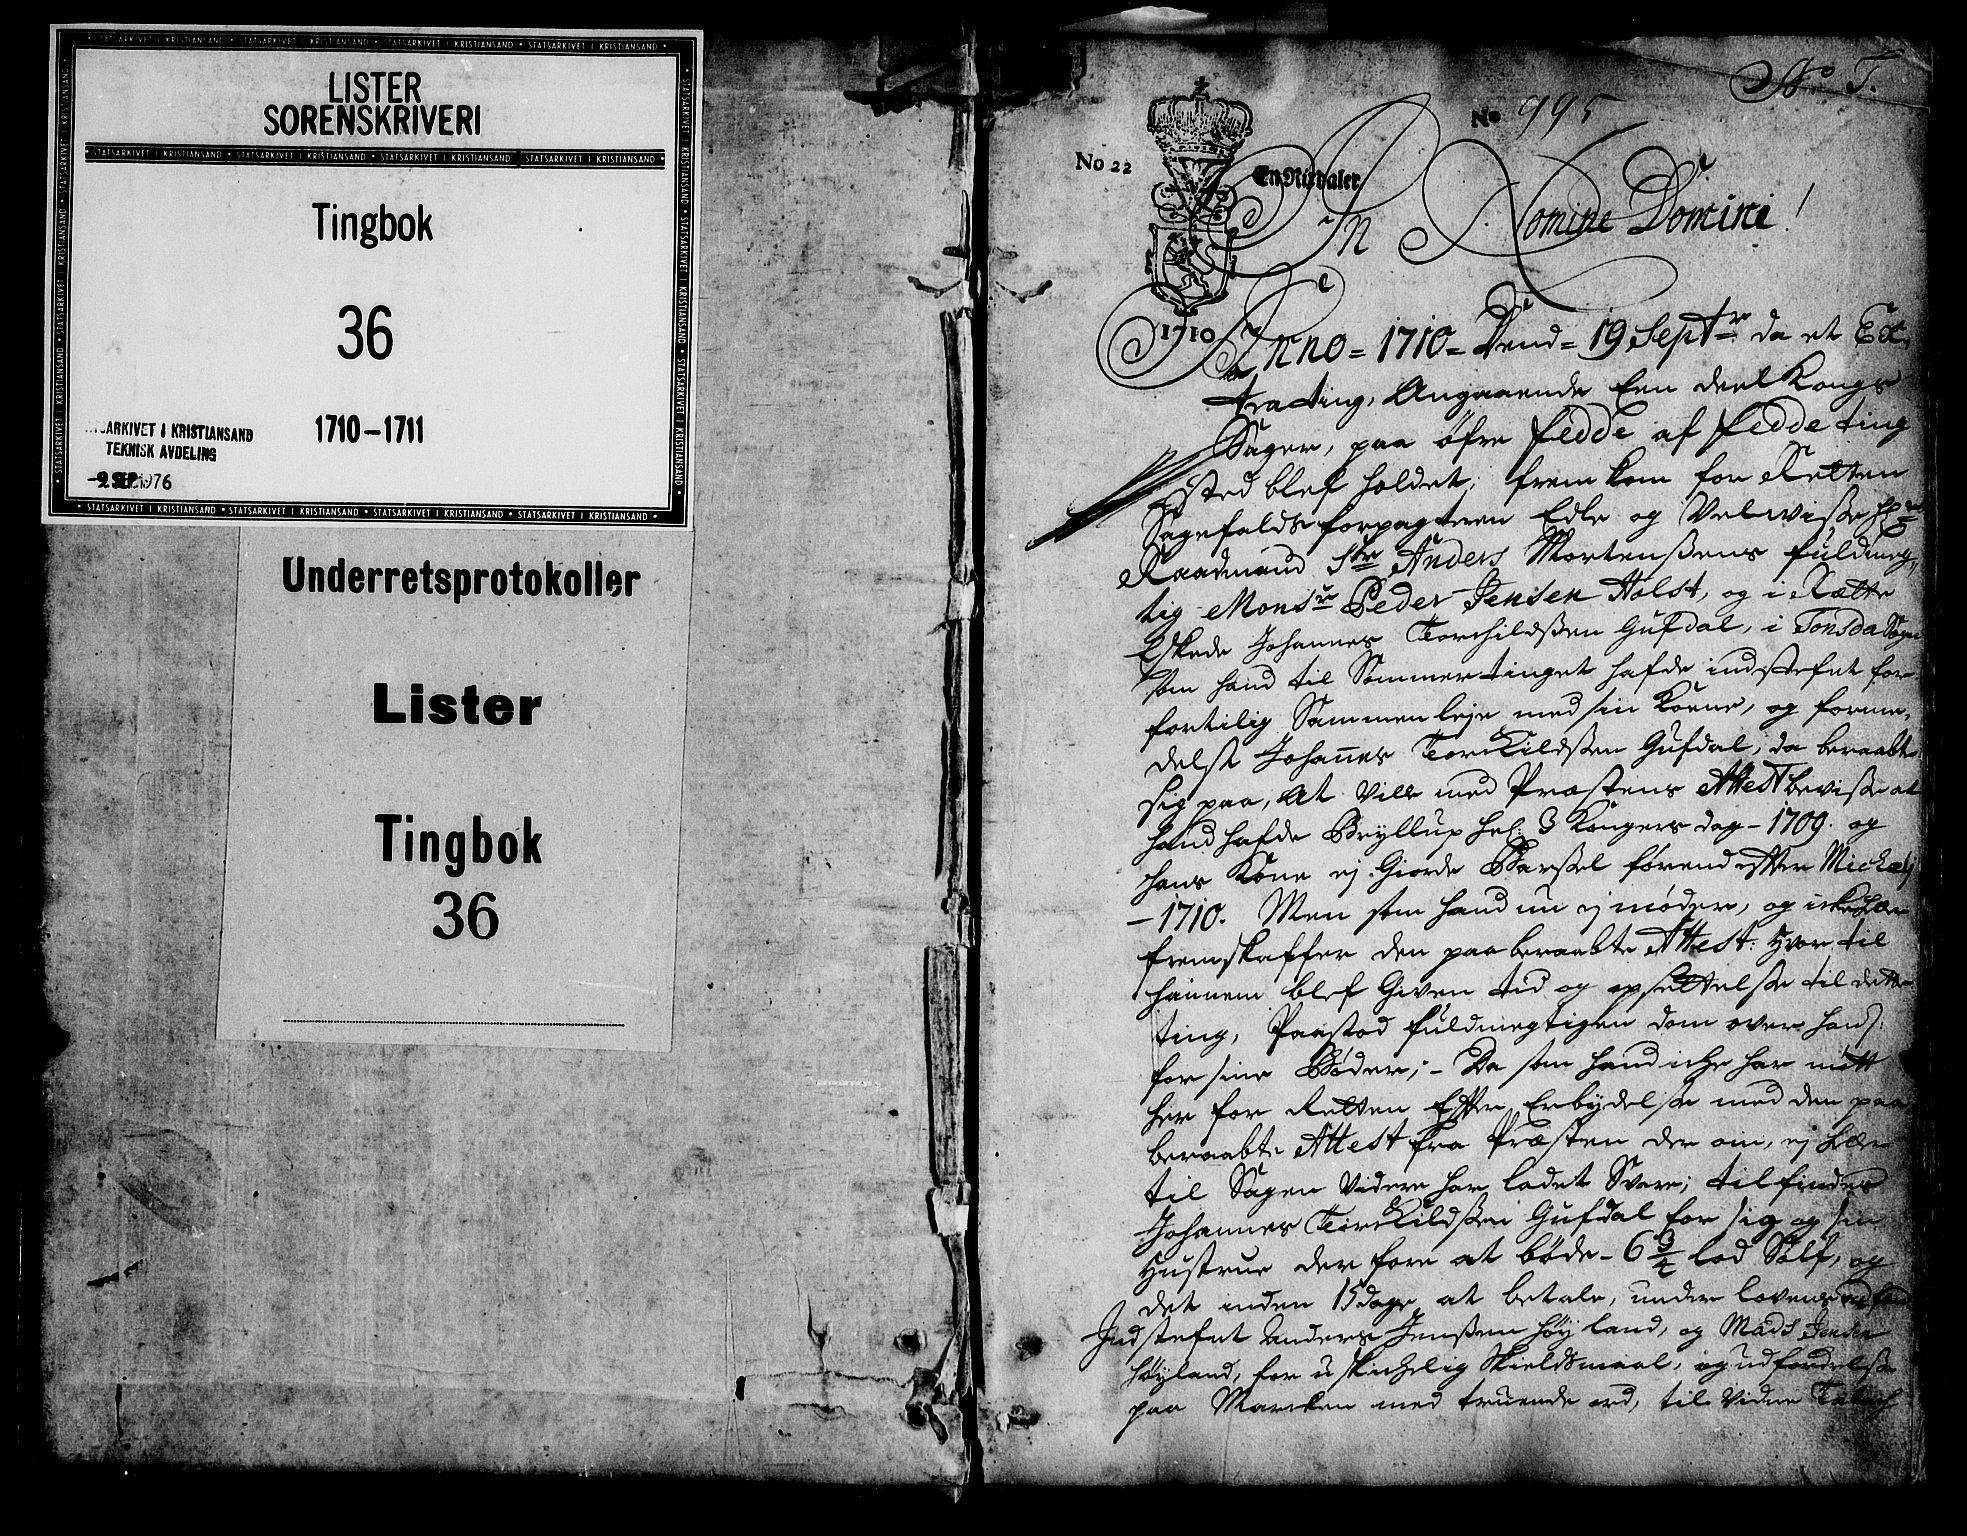 STATSARKIVET I KRISTIANSAND
LISTER
SORENSKRIVERI
Tingbok
36
1710-1711
ARKIVET I KRISTIANSAND
TEKNISK AVDELING
-9. SEP. 1976
Underretsprotokoller
Lister
Tingbok
36
No T.
No 995
No 22
En Rixdaler
In Nomine Domini!
1710
Anno = 1710 = Dend = 19 Septr da et Ex,
tra ting, Angaaende Een deel Kongs
Sager, paa øfre fedde af fedde ting
sted blef holdet; frem kom for Retten
Sagefaldsforpagteren Edle og Velwiiße Hr
Raadmand Sr Anders Mortenßens fuldmeg,,
tig Monsr Peder Jensen Holst, og i Rette
Eskede Johannes Torchildßen Gufdal, i Tonstad Sogn
som hand til Sommertinget hafde indstefnt for
fortilig Sammenleje med sin Kone, og forme,
delst Johannes Torkildßen Gufdal, da beraabte
sig paa, at Ville med Præstens Attest beviiße at
hand hafde Bryllup hel: 3 Kongers dag - 1709. og
hans Kone ej Giorde Barßel førend Efter Michelj
- 1710. Men som hand nu ej møder, og icke
fremskaffer den paaberaabte Attest. Hvor til
hannem blef Given tid og opsettelße til dette
ting, Paastod fuldmegtigen dom over hans:
for sine Bøder; - Da som hand icke har mött
her for Retten Efter Erbydelße med den paa
beraabte Attest fra Præsten der om, ej
til Sagen Videre har ladet Svare; tilfindes
Johannes Torkildßen Gufdal for sig og sin
Hustrue der fore at bøde - 6 3/4 lod Sølf, og
det inden 15 dage at betale, under lovens
Indstefnt Anders Jenßen Høyland, og Mads Jensen
Høyland, for uskickelig Skieldsmaal, og udfordelße
paa Marcken med truende ord, til Vidne